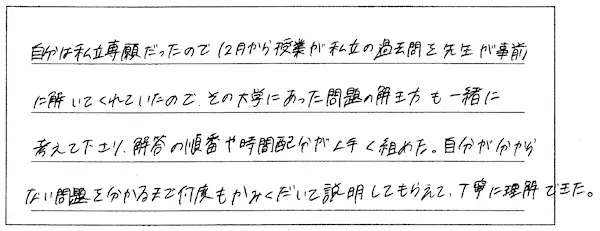 自分は私立専願だったので12月から授業が私立の過去問を先生が事前
に解いてくれていたので、その大学にあった問題の解き方も一緒に
考えて下さり、解答の順番や時間配分が上手く組めた。自分が分から
ない問題を分かるまで何度もかみくだいて説明してもらえて、丁寧に理解できた。